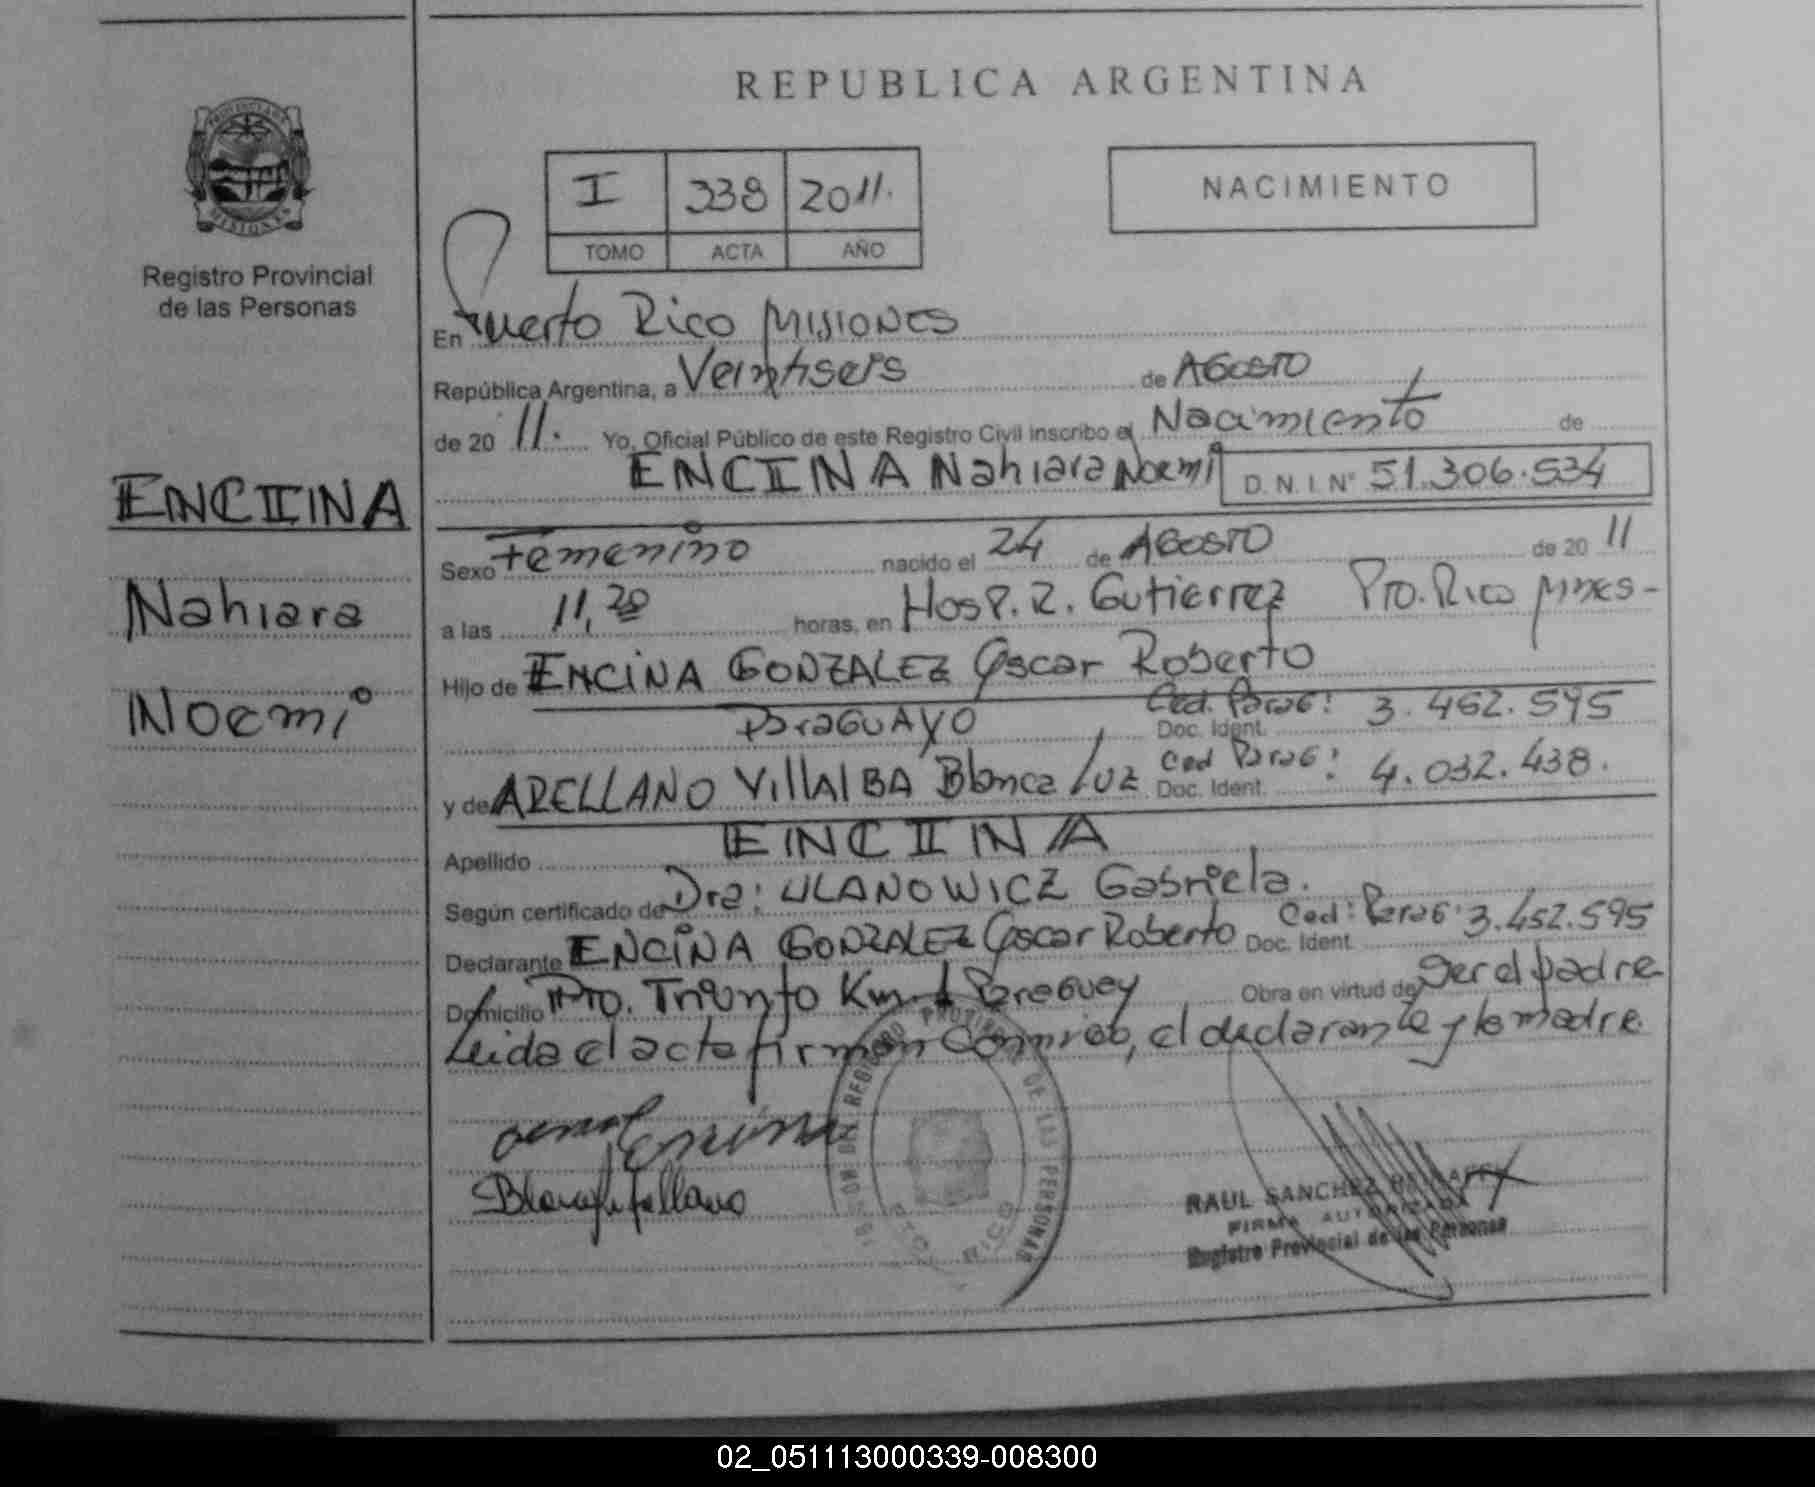 REPUBLICA ARGENTINA
PROVINCIA DE
MISIONES
Registro Provincial
de las Personas
I 338 2011.
TOMO ACTA AÑO
NACIMIENTO
En Puerto Rico Misiones
República Argentina, a Veintiseis de Agosto
de 20 11. Yo, Oficial Público de este Registro Civil inscribo el Nacimiento de
ENCINA Nahiara Noemi D. N. I. Nº 51.306.534
ENCINA
Nahiara
Noemi
Sexo Femenino nacido el 24 de Agosto de 20 11
a las 11,20 horas, en Hosp. R. Gutierrez Pto. Rico Mnes-
Hijo de ENCINA GONZALEZ Oscar Roberto
Paraguayo Ced. Parag: Doc. Ident. 3.452.595
y de ARELLANO VillALBA Blanca Luz Ced Parag: Doc. Ident. 4.032.438.
Apellido ENCINA
Según certificado de Dra: ULANOWICZ Gabriela.
Declarante ENCINA GONZALEZ Oscar Roberto Doc. Ident. Ced: Parag: 3.452.595
Domicilio Pto. Triunfo Km 1 Paraguay Obra en virtud de ser el padre
Leida el acta firman Conmigo, el declarante y la madre.
Encina
Blanca Arellano
REGISTRO PROVINCIAL DE LAS PERSONAS
PTO. RICO
RAUL SANCHEZ
FIRMA AUTORIZADA
Registro Provincial de las Personas
02_051113000339-008300